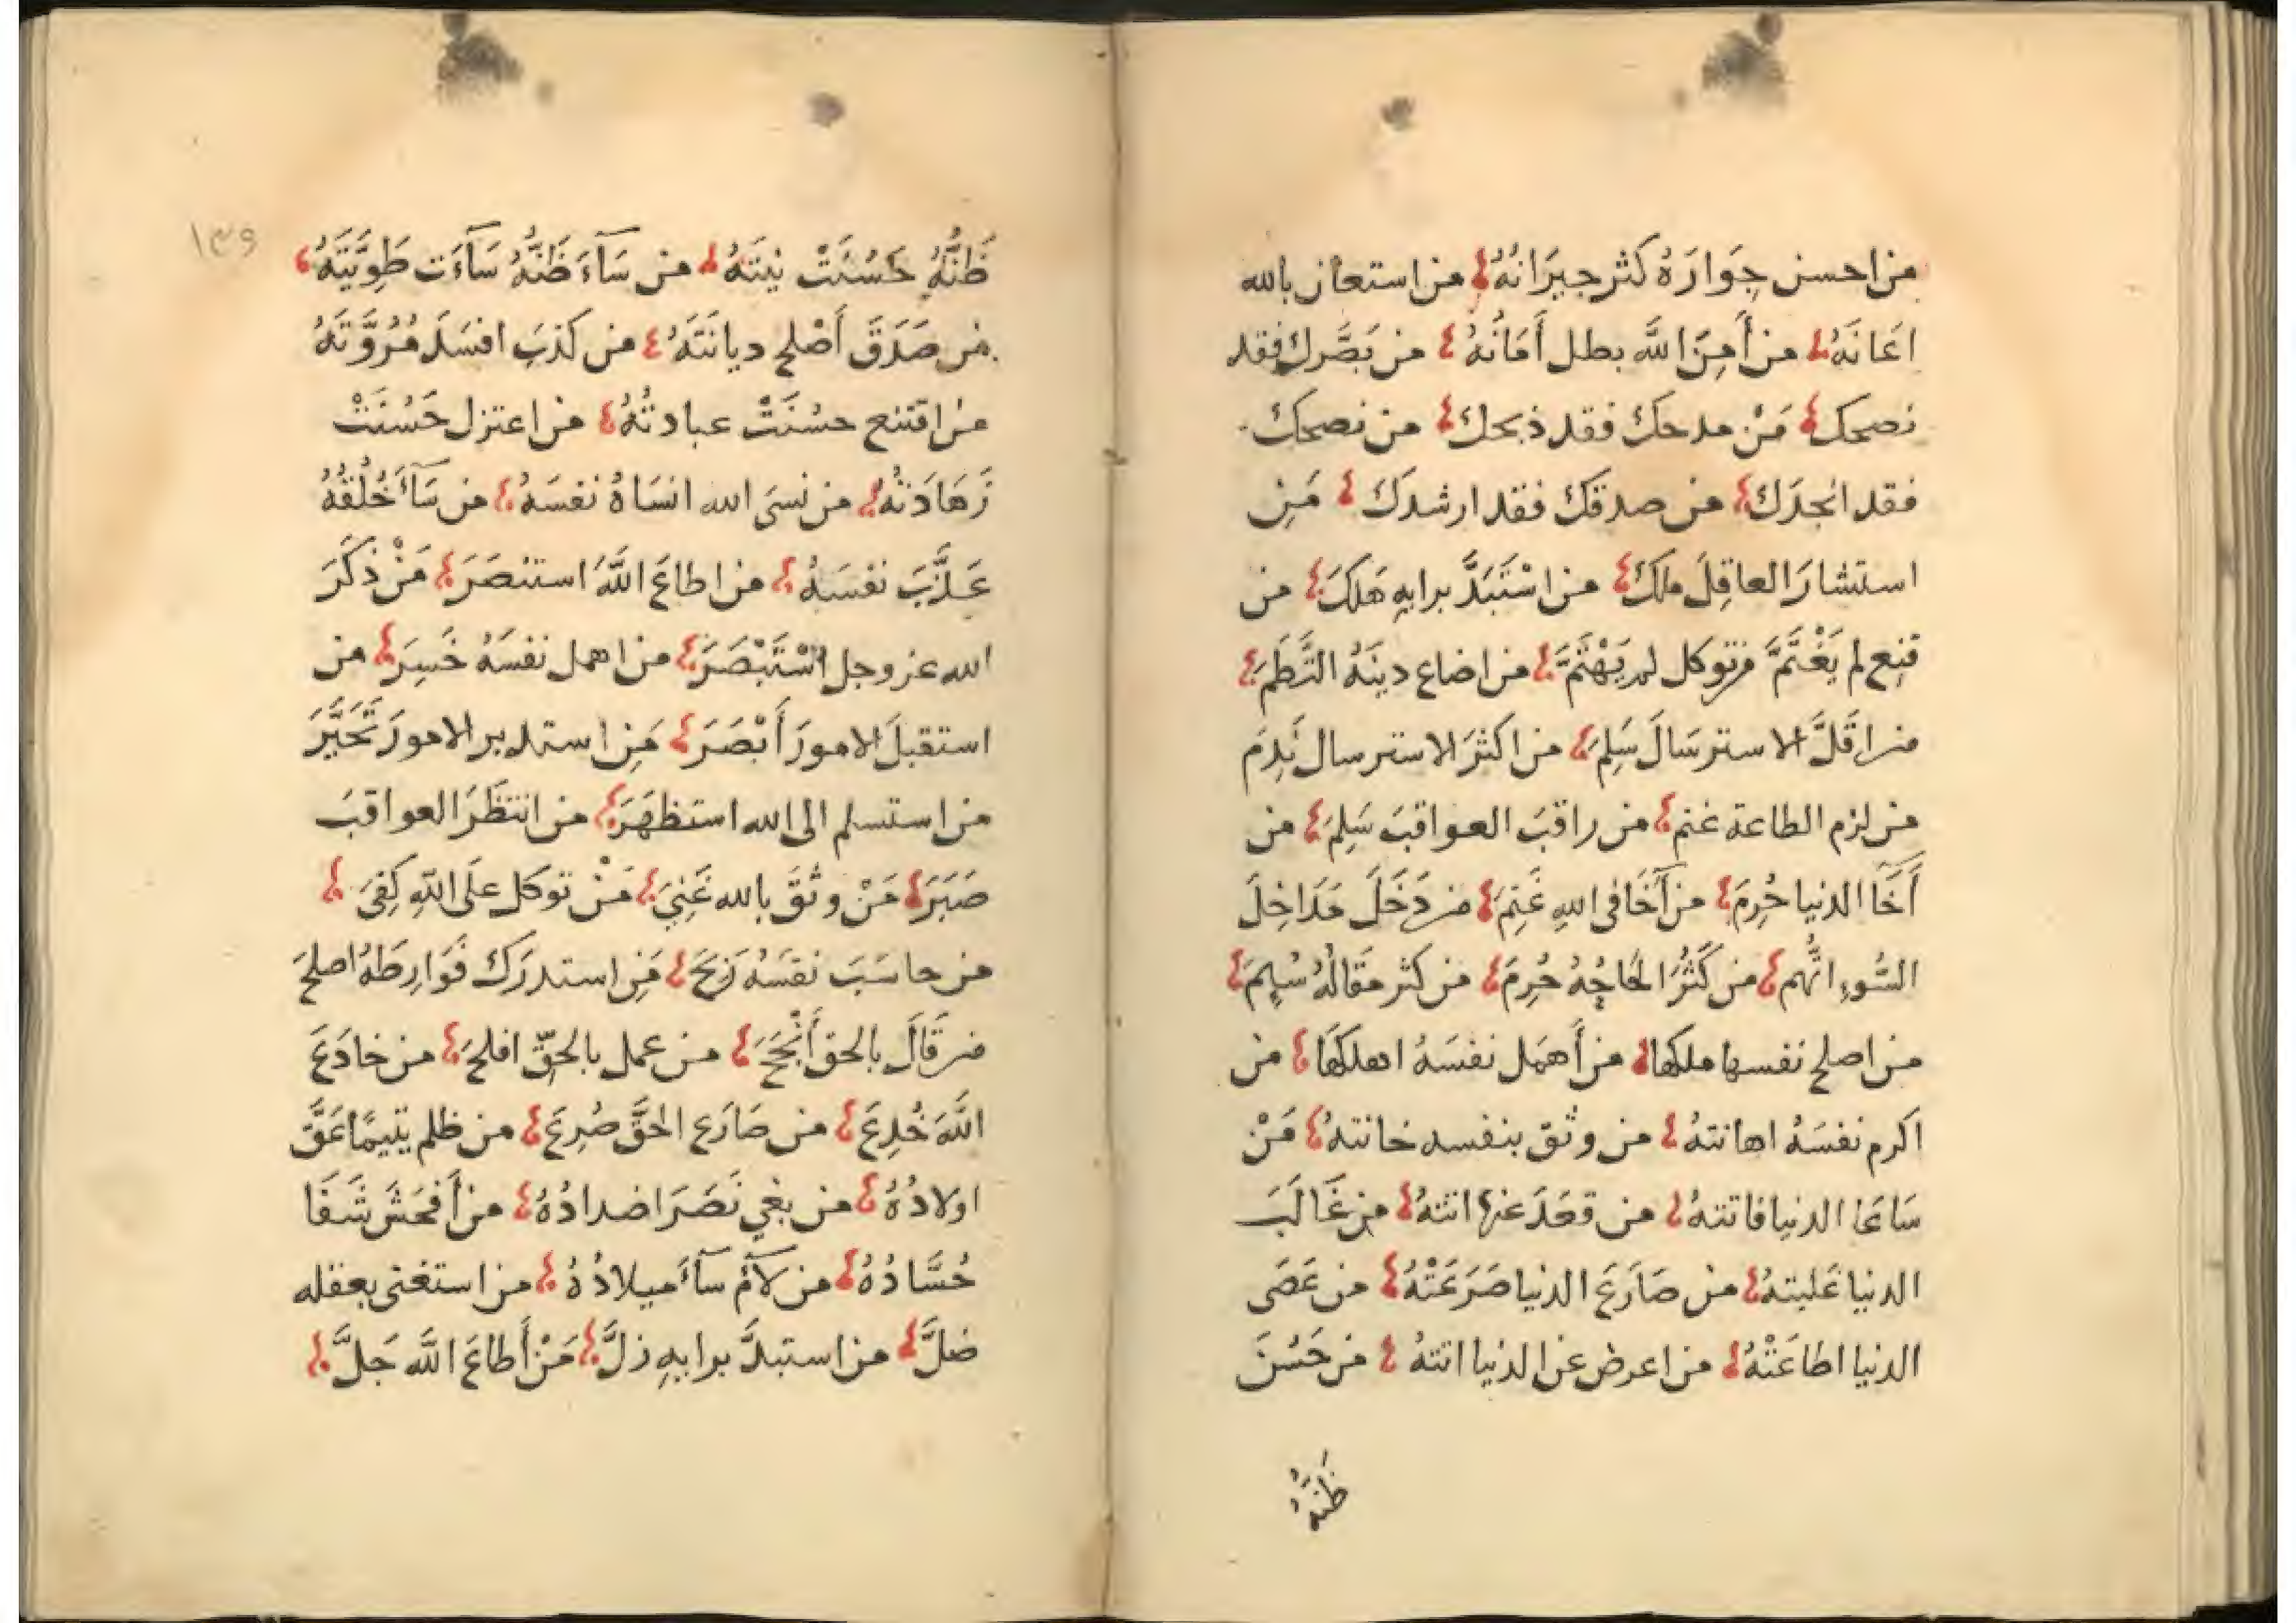 من احسن جِوَارَهُ كثر جيرَانُهُ من استعان بالله
اعَانَهُ من أَمِنَ اللَّه بطل أَمَانُهُ من بَصَّرك فقد
نصحك مَنْ مدحكَ فقد ذبحك من نصحك
فقد انجدَك من صدقكَ فقد ارشدكَ مَنِ
استشارَ العاقِلَ ملكَ من اسْتَبَدَّ برايهِ هَلكَ من
قنِع لم يَغْتَمَّ من توكل لم يَهْتَمَّ من اضاع دينَهُ التَطَمَ
من اقَلَّ الاسترسَالَ سَلِمَ من اكثرَ الاسترسال نَدِمَ
من لزم الطاعة غنم من راقبَ العواقبَ سَلِمَ من
أَخَا الدنيا حُرِمَ من آخَا في اللهِ غَنِمَ من دَخَلَ مَدَاخِلَ
السُّوءِ اتُّهم من كَثُرَ الحَاحُهُ حُرِمَ من كثر مقَالُهُ سُئِمَ
من اصلح نفسها ملكها من أَهمَل نفسَهُ اهلكَهَا من
اكرم نفسَهُ اهانتهُ من وثق بنفسه خانتهُ مَنْ
سَاعَا الدنيا فاتتهُ من قعَدَ عنها اتتهُ من غَالَبَ
الدنيا غَلبتهُ من صَارَعَ الدنيا صَرَعَتْهُ من عَصَى
الدنيا اطاعَتْهُ من اعرض عن الدنيا اتتهُ من حَسُنَ
ظَنُّهُ
١٣٩
ظَنُّهُ حَسُنَتْ نيتَهُ من سَآءَ ظَنُّهُ سَآءَت طَوِيَّتَهُ
من صَدَقَ أَصْلح ديانَتَهُ من كَذبَ افسَدَ مُرُوَّتَهُ
من اقتنع حسُنَتْ عبادتُهُ من اعتزل حَسُنَتْ
زَهَادَتُهُ من نسىَ الله انسَاهُ نفسَهُ من سَآءَ خُلُقُهُ
عَذَّبَ نفسَهُ من اطاعَ اللَّهَ استنصَرَ مَنْ ذكَرَ
الله عز وجل اسْتَبْصَرَ من اهمل نفسَهُ خَسِرَ من
استقبلَ الامورَ أَبْصَرَ مَنِ استدبر الامورَ تَحَيَّرَ
من استسلم الى الله استظهَرَ من انتظَرَ العواقبَ
صَبَرَ مَنْ وثقَ بالله غَنِيَ مَنْ توكل علَى اللَّهِ كِفىَ
من حاسَبَ نفسَهُ رَبحَ مَنِ استدرَكَ فَوَارِطَهُ اصلحَ
من قَالَ بالحق أَنْجَحَ من عمل بالحقّ افلحَ من خادَعَ
اللَّهَ خُدِعَ من صَارَع الحَقَّ صُرِعَ من ظلم يتيمًا عَقَّ
اولادُهُ من بغي نَصَرَ اضدادُهُ من أَفحَشَ شَفَا
حُسَّادُهُ من لَآمُ سآءَ ميلادُهُ من استغنى بعقله
ضلَّ من استبدَّ برايهِ زلَّ مَنْ أَطاعَ اللَّه جَلَّ